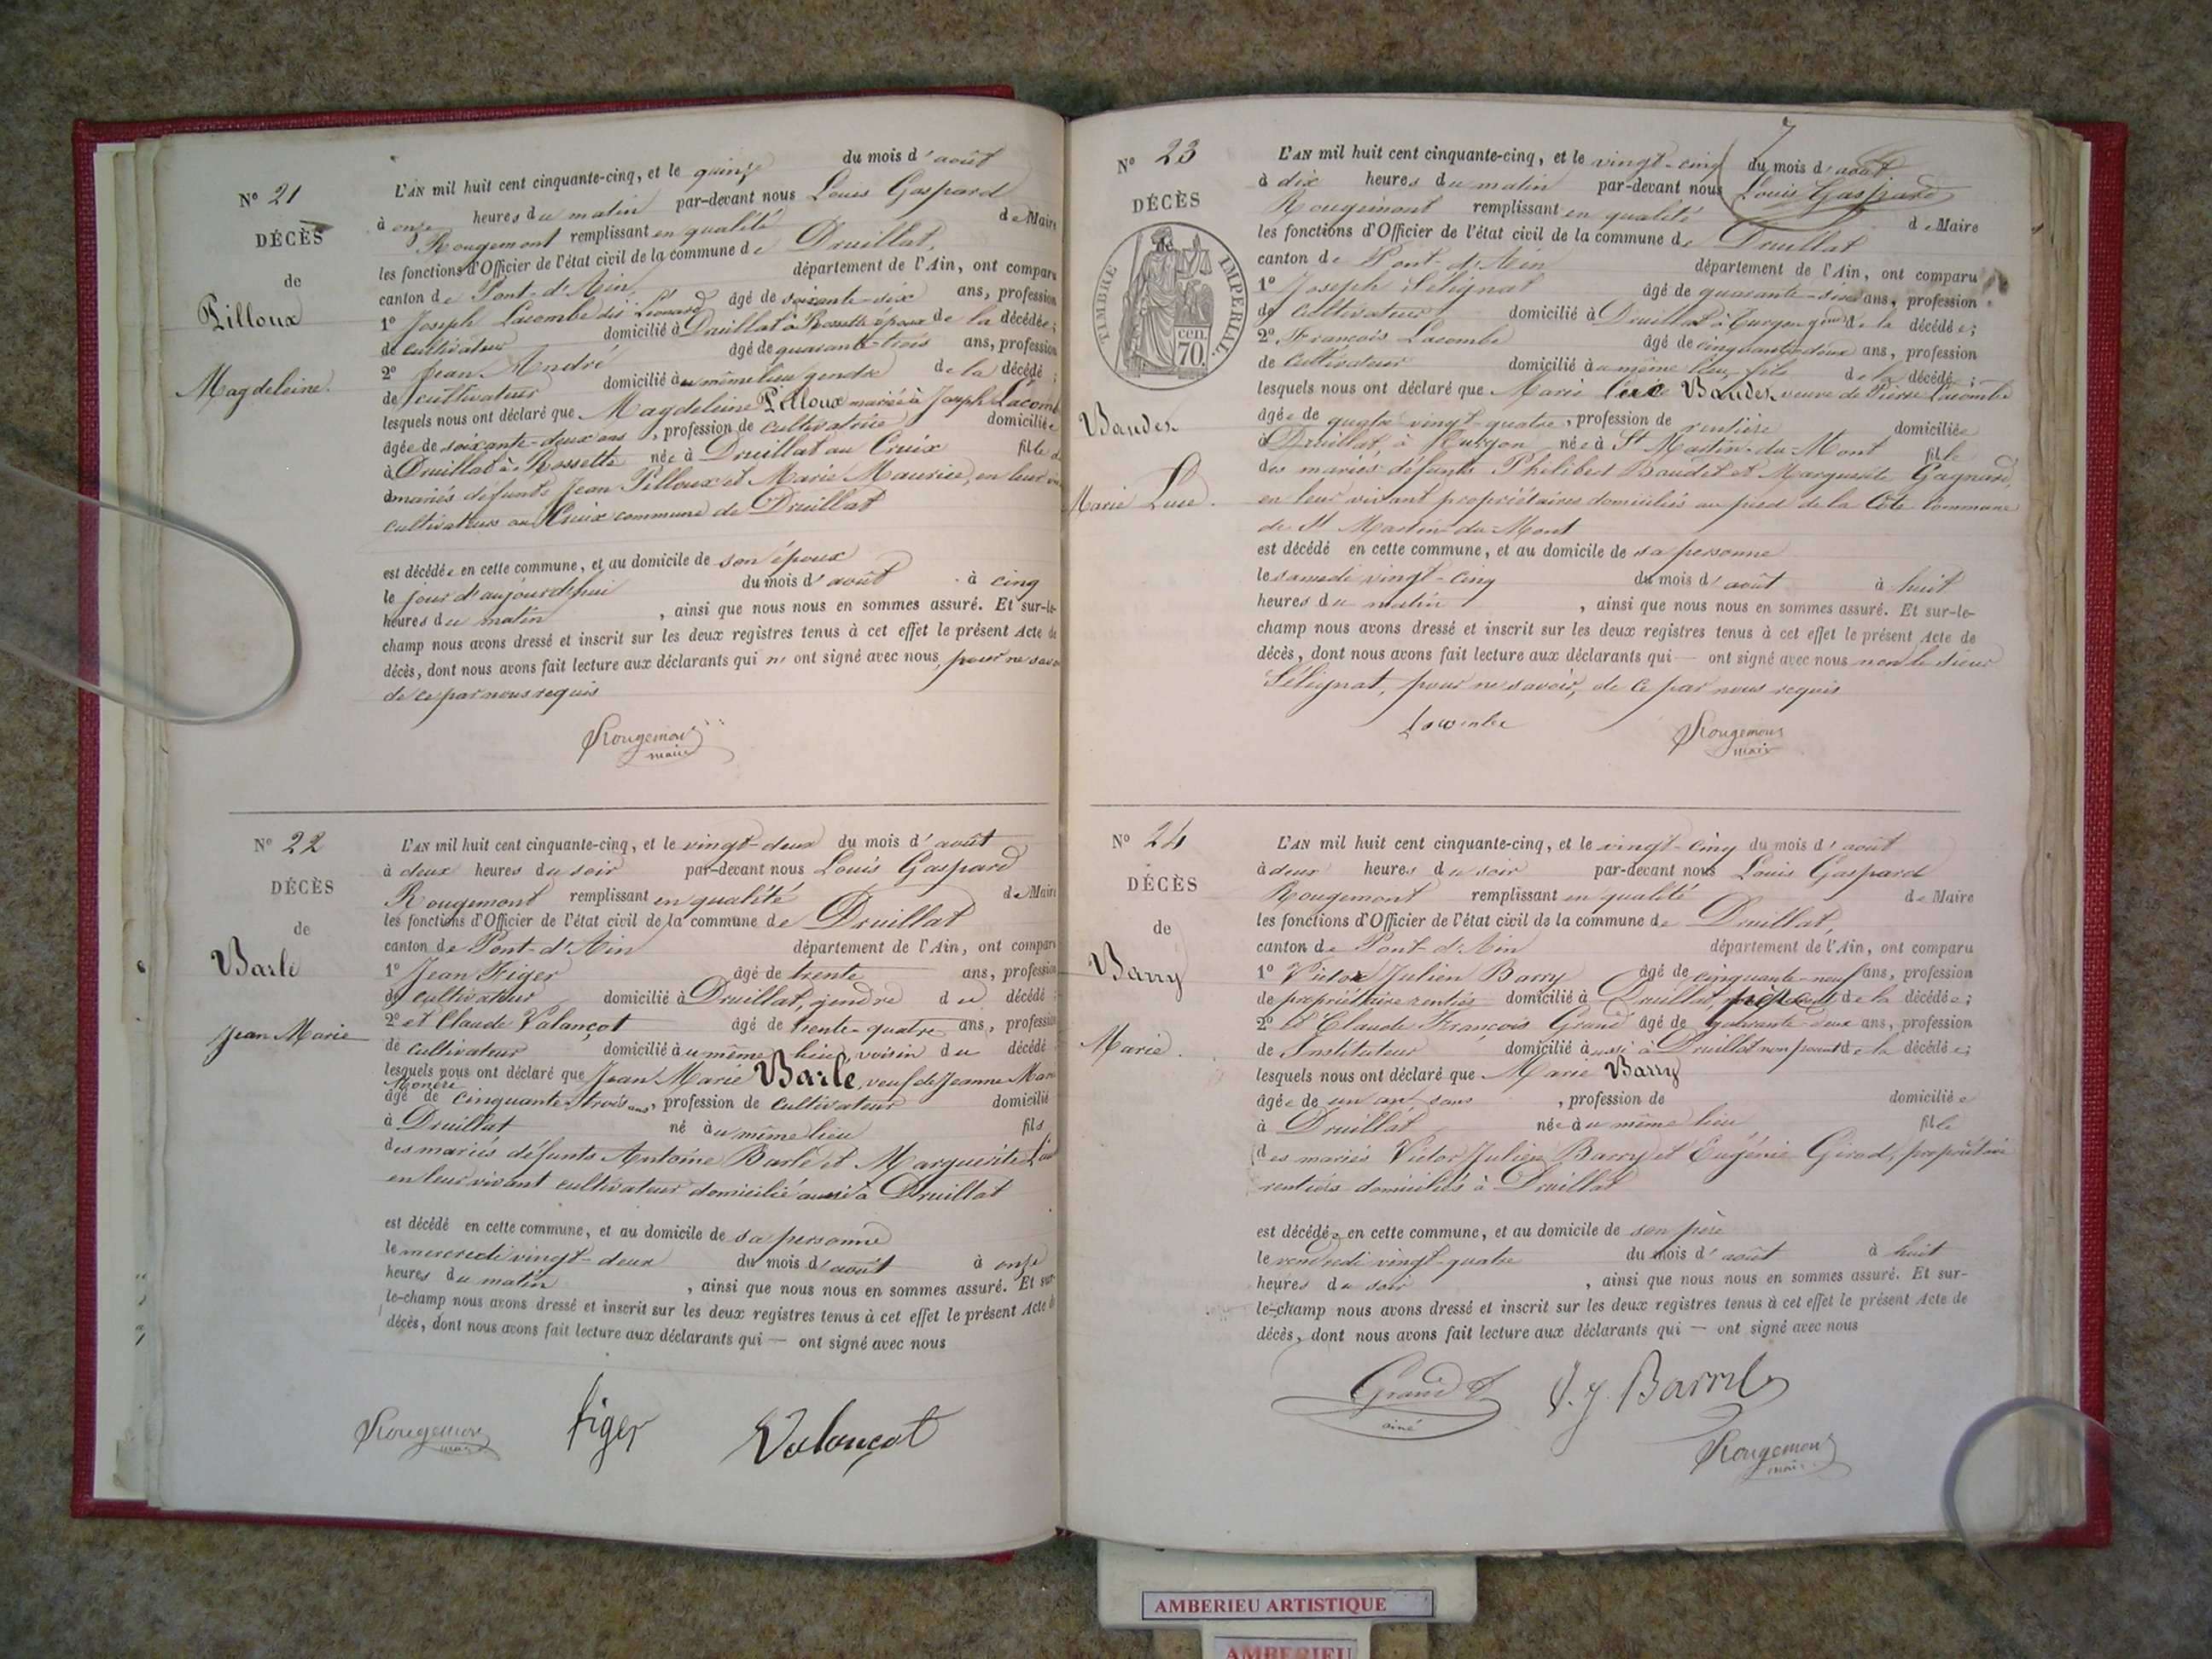 N° 21
DÉCÈS
de
Pilloux
Magdeleine.
L'AN mil huit cent cinquante-cinq, et le quinze du mois d'août
à onze heures du matin par-devant nous Louis Gaspard
Rougemont remplissant en qualité de Maire
les fonctions d'Officier de l'état civil de la commune de Druillat,
canton de Pont-d'Ain département de l'Ain, ont comparu
1° Joseph Lacombe dit Léonard âgé de soixante-dix ans, profession
de cultivateur domicilié à Druillat à Rossette époux de la décédée;
2° Jean André âgé de quarante-trois ans, profession
de cultivateur domicilié au même lieu gendre de la décédé ;
lesquels nous ont déclaré que Magdeleine Pilloux mariée à Joseph Lacombe
âgée de soixante-deux ans, profession de cultivatrice domiciliée
à Druillat à Rossette née à Druillat au Cruix fille de
mariés défunts Jean Pilloux et Marie Maurice, en leur
cultivateurs au Cruix commune de Druillat
est décédée en cette commune, et au domicile de son époux
le jour d'aujourd'hui du mois d'août à cinq
heures du matin , ainsi que nous nous en sommes assuré. Et sur-le-
champ nous avons dressé et inscrit sur les deux registres tenus à cet effet le présent Acte de
décès, dont nous avons fait lecture aux déclarants qui n'ont signé avec nous, pour ne savoir
de ce par nous requis
Rougemont
maire
N° 22
DÉCÈS
de
Barle
Jean Marie
L'AN mil huit cent cinquante-cinq, et le vingt-deux du mois d'août
à deux heures du soir par-devant nous Louis Gaspard
Rougemont remplissant en qualité de Maire
les fonctions d'Officier de l'état civil de la commune de Druillat
canton de Pont-d'Ain département de l'Ain, ont comparu
1° Jean Figer âgé de trente ans, profession
de cultivateur domicilié à Druillat, gendre du décédé ;
2° et Claude Valançot âgé de trente-quatre ans, profession
de cultivateur domicilié au même lieu, voisin du décédé
lesquels nous ont déclaré que Jean Marie Barle, veuf de Jeanne Marie
âgé de cinquante-trois ans, profession de cultivateur domicilié
à Druillat né au même lieu fils
des mariés défunts Antoine Barle et Marguerite
en leur vivant cultivateur domicilié aussi à Druillat
est décédé en cette commune, et au domicile de sa personne
le mercredi vingt-deux du mois d'août à onze
heures du matin , ainsi que nous nous en sommes assuré. Et sur-
le-champ nous avons dressé et inscrit sur les deux registres tenus à cet effet le présent Acte de
décès, dont nous avons fait lecture aux déclarants qui — ont signé avec nous
Rougemont
maire
figer
Valançot
7
N° 23
DÉCÈS
TIMBRE IMPÉRIAL.
cen.
70.
Baudet
Marie Luce.
L'AN mil huit cent cinquante-cinq, et le vingt-cinq du mois d'août
à dix heures du matin par-devant nous Louis Gaspard
Rougemont remplissant en qualité de Maire
les fonctions d'Officier de l'état civil de la commune de Druillat
canton de Pont-d'Ain département de l'Ain, ont comparu
1° Joseph Sélignat âgé de quarante-six ans, profession
de cultivateur domicilié à Druillat à Turgon gendre de la décédée;
2° François Lacombe âgé de cinquante-deux ans, profession
de cultivateur domicilié au même lieu, fils de la décédé ;
lesquels nous ont déclaré que Marie Luce Baudet veuve de Pierre Lacombe
âgée de quatre-vingt-quatre, profession de rentière domiciliée
à Druillat, à Turgon née à St Martin-du-Mont fille
des mariés défunts Philibert Baudet et Marguerite Gagnard
en leur vivant propriétaires domiciliés au pied de la Côte commune
de St Martin-du-Mont
est décédé en cette commune, et au domicile de sa personne
le samedi vingt-cinq du mois d'août à huit
heures du matin , ainsi que nous nous en sommes assuré. Et sur-le-
champ nous avons dressé et inscrit sur les deux registres tenus à cet effet le présent Acte de
décès, dont nous avons fait lecture aux déclarants qui — ont signé avec nous non le sieur
Sélignat, pour ne savoir, de ce par nous requis
Lacombe
Rougemont
maire
N° 24
DÉCÈS
de
Barry
Marie.
L'AN mil huit cent cinquante-cinq, et le vingt-cinq du mois d'août
à deux heures du soir par-devant nous Louis Gaspard
Rougemont remplissant en qualité de Maire
les fonctions d'Officier de l'état civil de la commune de Druillat,
canton de Pont-d'Ain département de l'Ain, ont comparu
1° Victor Julien Barry âgé de cinquante-neuf ans, profession
de propriétaire rentier domicilié à Druillat, de la décédée;
2° et Claude François Grand âgé de quarante-deux ans, profession
de Instituteur domicilié aussi à Druillat non parent de la décédée;
lesquels nous ont déclaré que Marie Barry
âgée de un an sans , profession de domiciliée
à Druillat née au même lieu fille
des mariés Victor Julien Barry et Eugénie Girod, propriétaires
rentiers domiciliés à Druillat
est décédée en cette commune, et au domicile de son père
le vendredi vingt-quatre du mois d'août à huit
heures du soir , ainsi que nous nous en sommes assuré. Et sur-
le-champ nous avons dressé et inscrit sur les deux registres tenus à cet effet le présent Acte de
décès, dont nous avons fait lecture aux déclarants qui — ont signé avec nous
Grand
ainé
V. J. Barry
Rougemont
maire
AMBERIEU ARTISTIQUE
AMBERIEU